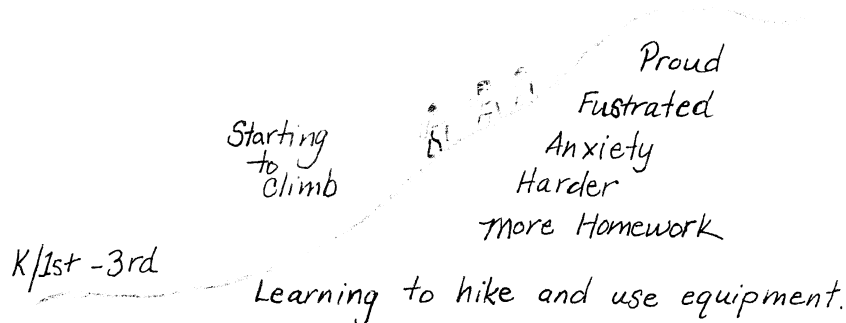 Proud
Fustrated
Starting
to
Climb
Anxiety
Harder
More Homework
K/1st - 3rd
Learning to hike and use equipment.